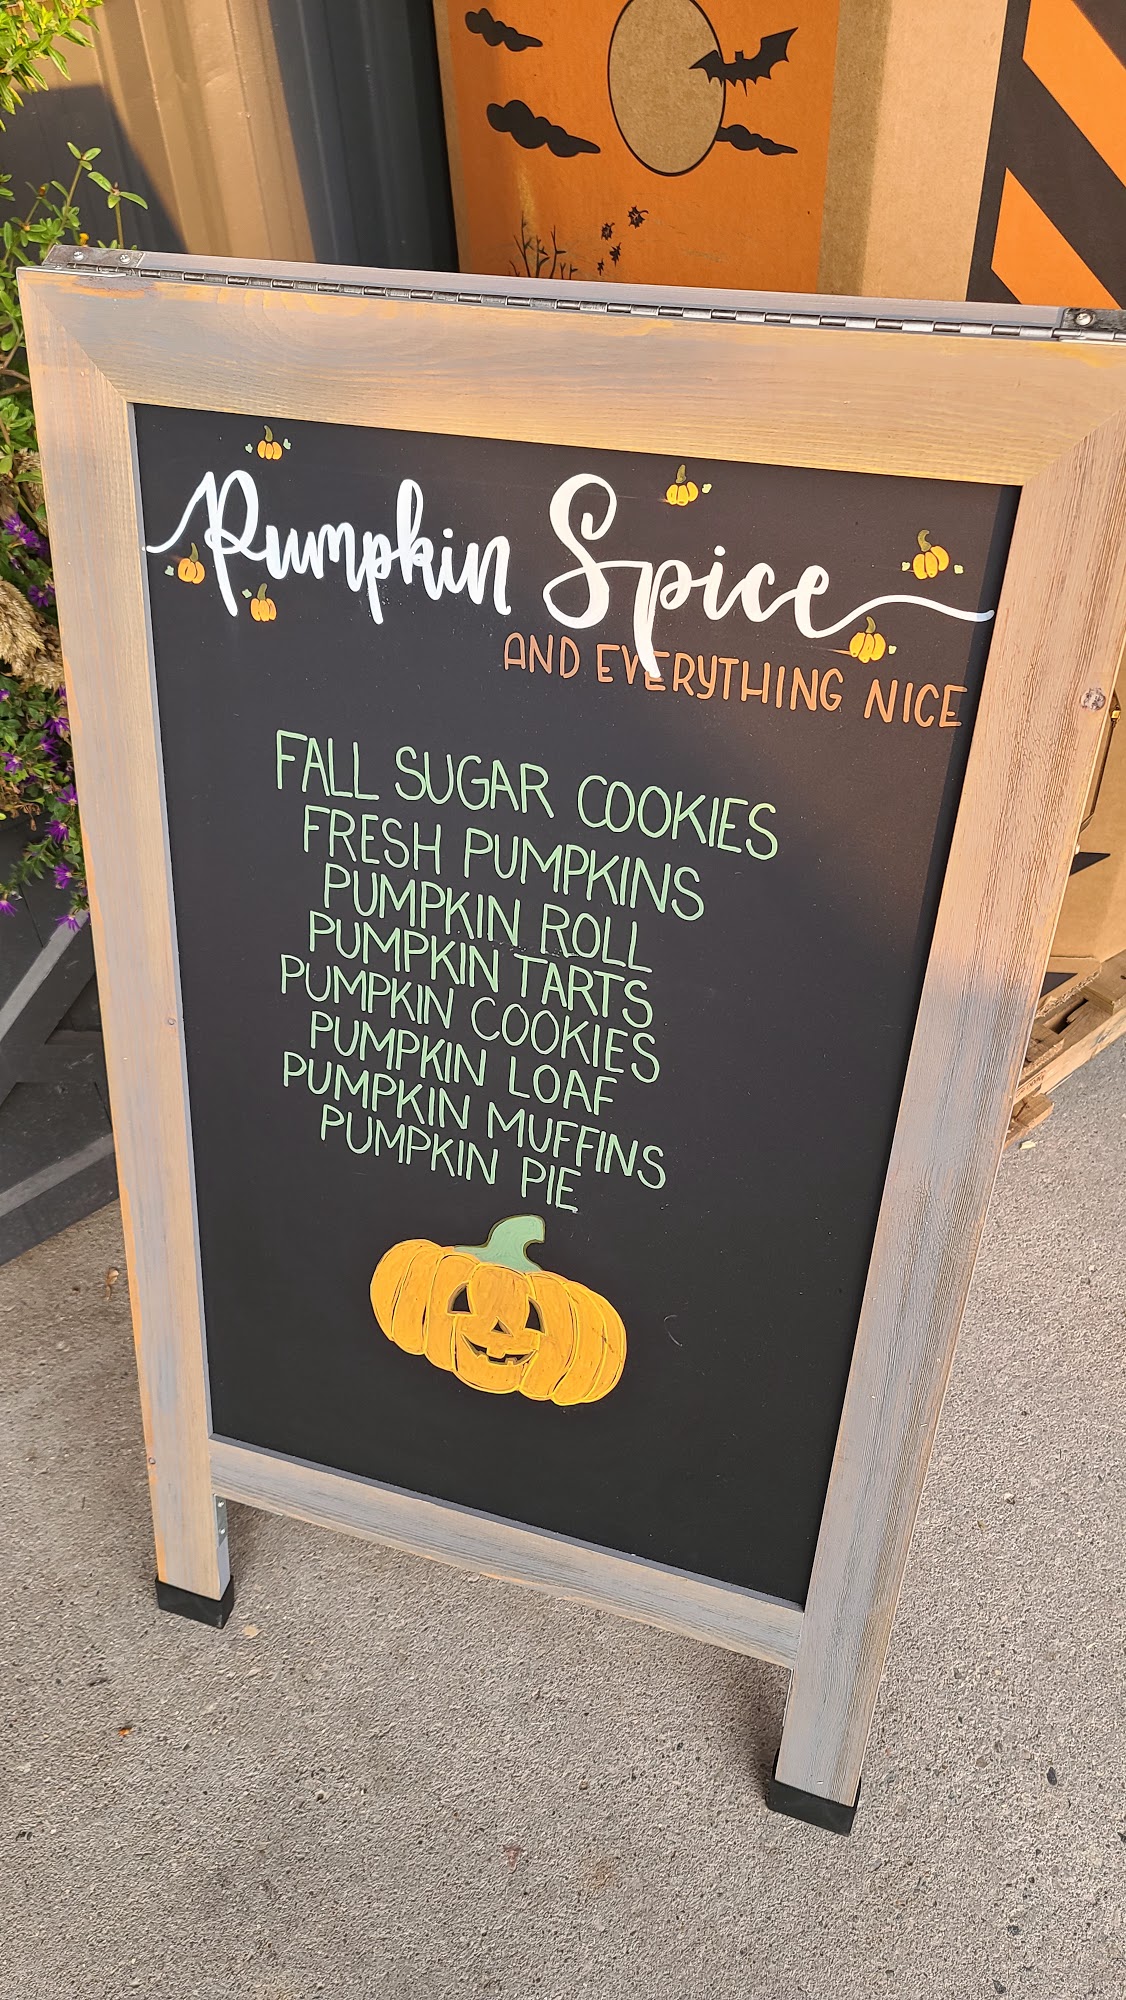 Pumpkin Spice
AND EVERYTHING NICE
FALL SUGAR COOKIES
FRESH PUMPKINS
PUMPKIN ROLL
PUMPKIN TARTS
PUMPKIN COOKIES
PUMPKIN LOAF
PUMPKIN MUFFINS
PUMPKIN PIE